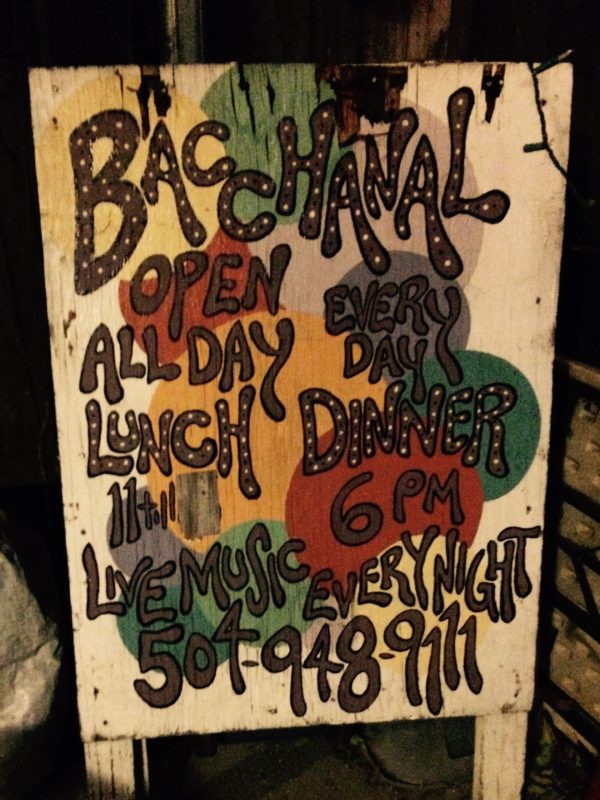 BACCHANAL
OPEN EVERY
ALL DAY DAY
LUNCH DINNER
11 till 6 PM
LIVE MUSIC EVERY NIGHT
504-948-9111